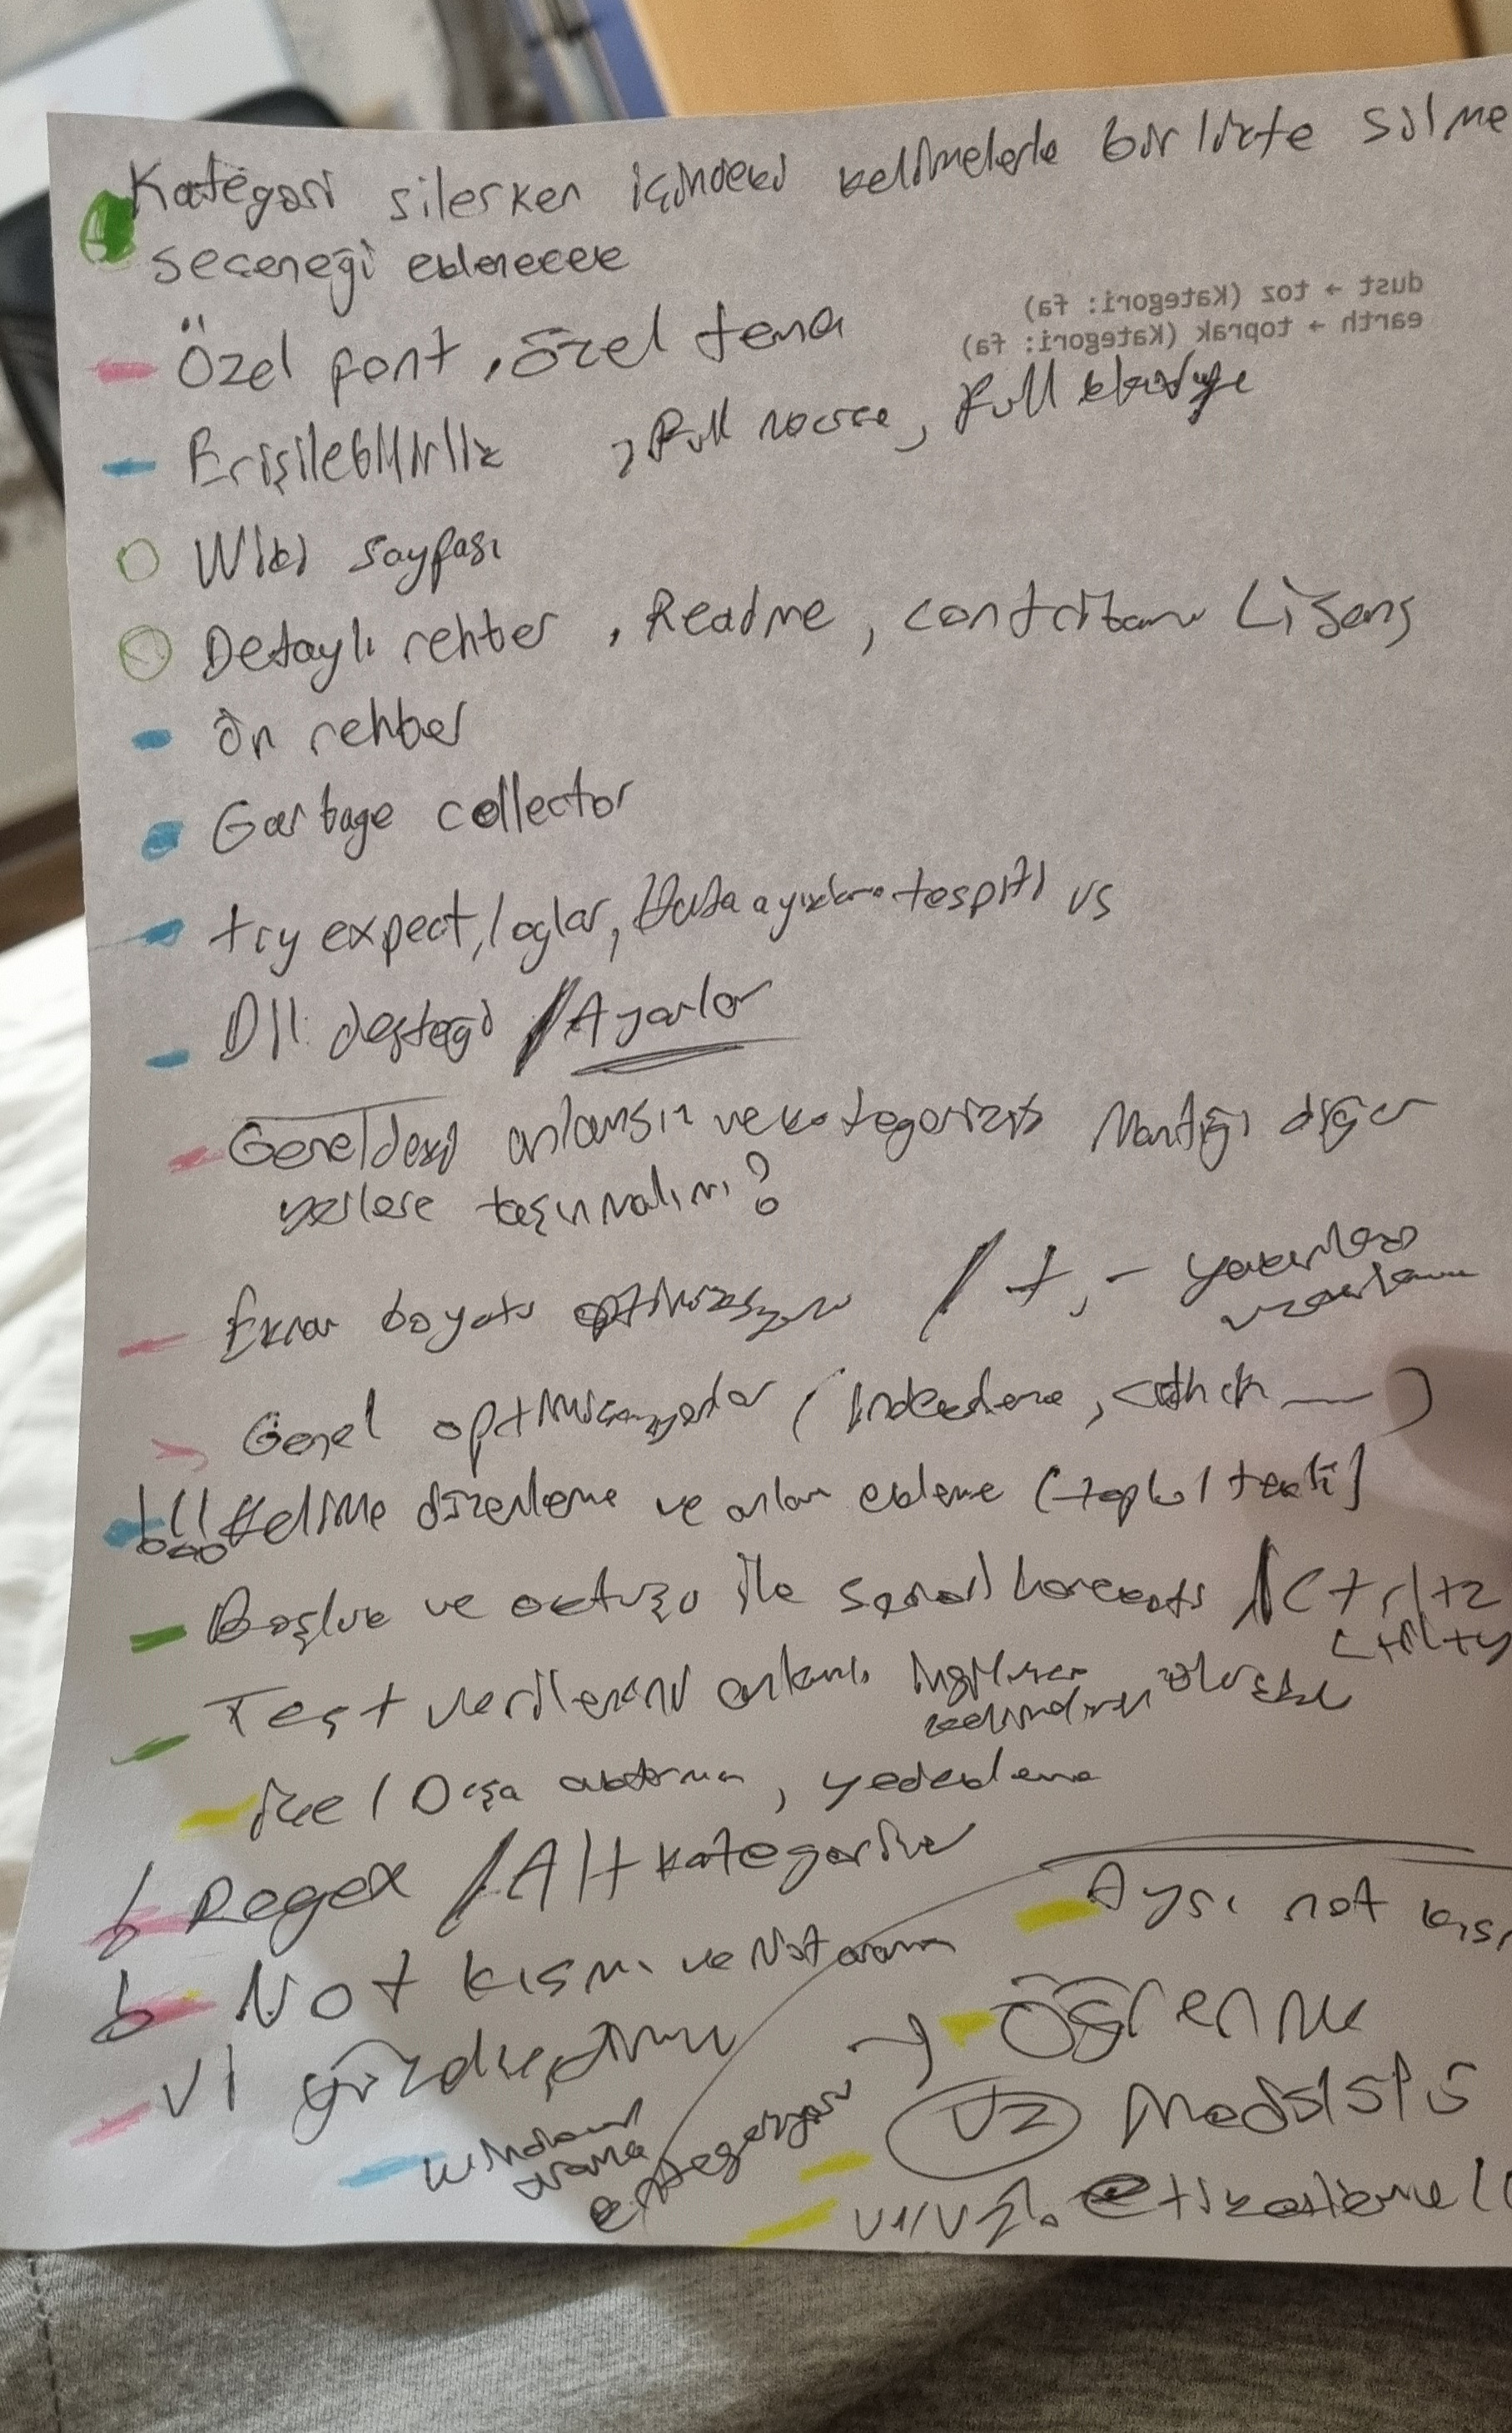 Kategori silerken içindeki kelimelerle birlikte silme
seçeneği eklenecek
dust → toz (Kategori: fa)
earth → toprak (Kategori: fa)
Özel font, özel tema
Erişilebilirlik , Full mouse, Full klavye
Wiki sayfası
Detaylı rehber, Readme, Lisans
Ön rehber
Garbage collector
try expect, loglar, Hata ayıklama tespiti vs
Dil desteği / Ayarlar
Geneldeki anlamsız ve kategorisiz Mantığı diğer
yerlere taşınmalı mı?
Ekran boyutu optimizasyonu / +, - yakınlaşma
uzaklaşma
Genel optimizasyonlar (indexleme,
!!! Kelime düzenleme ve anlam ekleme (toplu / tekli)
Boşluk ve ok tuşu ile hareketi / Ctrl+z
Ctrl+y
Test verilerini anlamlı İngilizce
kelimelerden oluştur
İçe / Dışa aktarma, yedekleme
Regex / Alt kategoriler
Ayrı not kıs
Not kısmı ve Not arama
Öğrenme
V1 güzelleştirme
V2
arama
entegrasyon
V1/V2 etiketleme